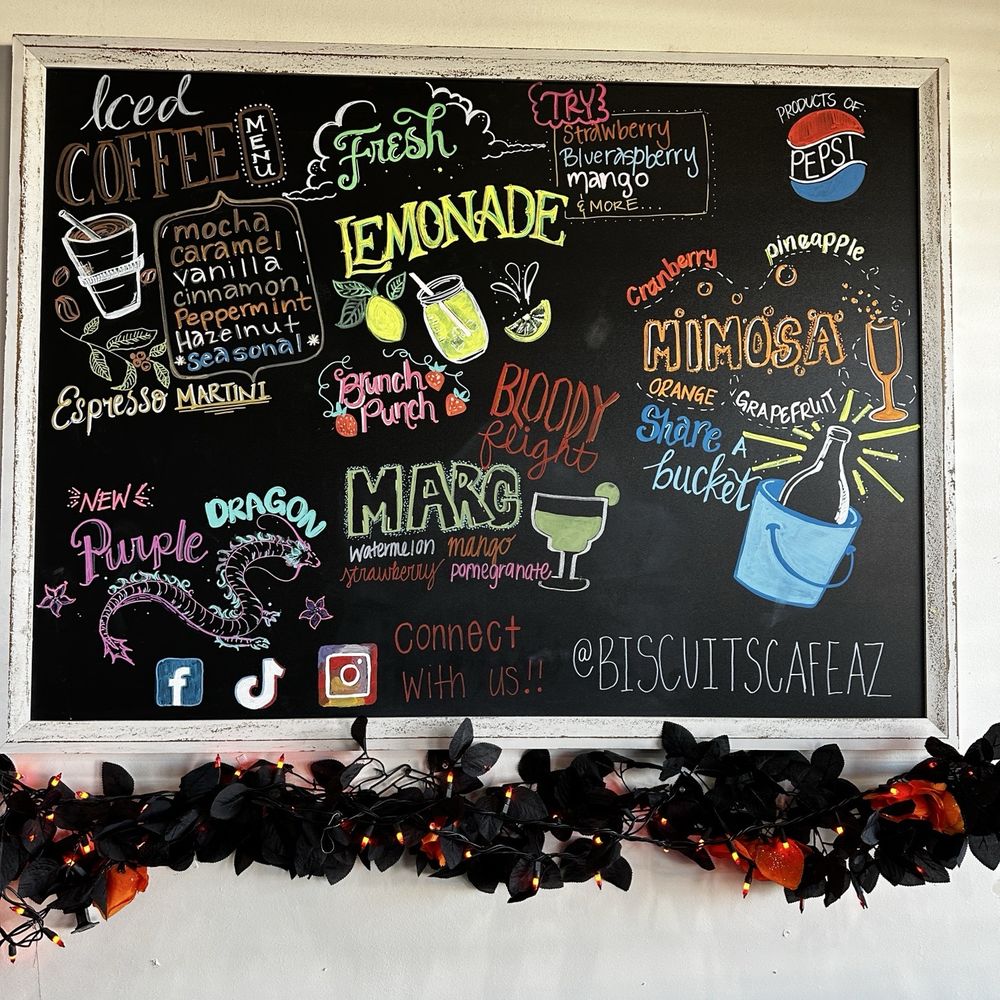 Iced
COFFEE
MENU
mocha
caramel
vanilla
cinnamon
Peppermint
Hazelnut
*seasonal*
Espresso MARTINI
Fresh
LEMONADE
TRY
strawberry
Blueraspberry
mango
& MORE...
PRODUCTS OF:
PEPSI
Brunch
Punch
BLOODY
flight
cranberry
pineapple
MIMOSA
ORANGE
GRAPEFRUIT
Share A
bucket
NEW
Purple
DRAGON
MARG
watermelon mango
strawberry pomegranate
f
connect
with us!!
@BISCUITSCAFEAZ